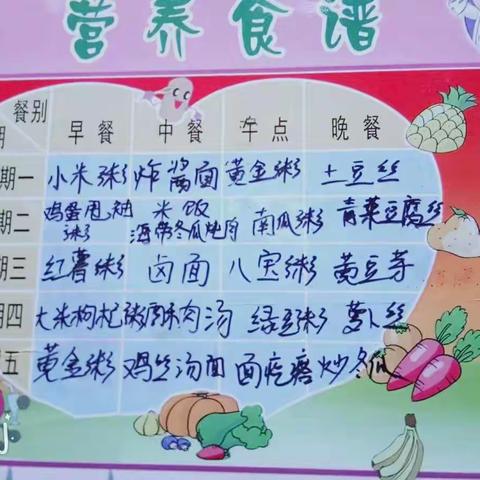 营养食谱
餐别 早餐 中餐 午点 晚餐
期
期一 小米粥 炸酱面 黄金粥 土豆丝
期二 鸡蛋甩袖粥 米饭 海带冬瓜炖肉 南瓜粥 青菜豆腐丝
期三 红薯粥 卤面 八宝粥 黄豆芽
期四 大米枸杞粥 肉汤 绿豆粥 萝卜丝
五 黄金粥 鸡丝汤面 面疙瘩 炒冬瓜